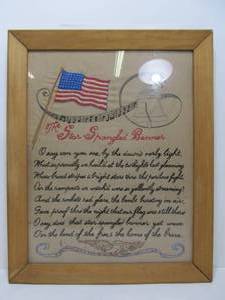 The Star Spangled Banner
O say can you see, by the dawn's early light,
What so proudly we hail'd at the twilight's last gleaming
Whose broad stripes & bright stars thro the perilous fight
O'er the ramparts we watch'd were so gallantly streaming?
And the rockets red glare, the bomb bursting in air,
Gave proof thro the night that our flag was still there
O say does that star spangled banner yet wave
O'er the land of the free & the home of the brave